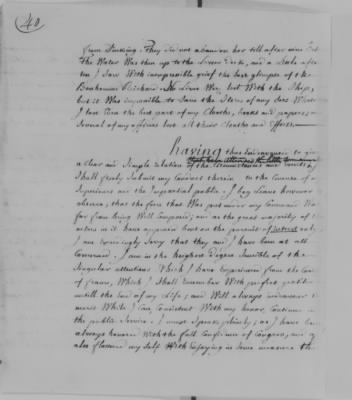 40
from Sinking. They did not abandon her till after nine
the Water was then up to the Lower Deck, and a little after
ten I saw With inexpressible grief the last glimpse of the
Bonhomme Richard. No Lives Were lost With the Ship,
but it Was impossible to Save the Stores of any sort What
I lost Even the best part of my Cloaths, books and papers,
Several of my officers lost all their Cloaths and Effects.
Having thus Endeavoured to give
a clear and Simple relation of the circumstances and events
I shall freely Submit my Conduct therein to the Censure of
Superiours and the impartial public. I beg Leave however
observe, that the force that Was put under my Command Was
far from being Well Composed; and as the great majority of
actors in it have appeared bent on the pursuit of interest only,
I am exceedingly Sorry that they and I have been at all
Concerned. I am in the highest Degree Sensible of the
Singular attentions Which I have Experienced from the
of france, Which I shall remember With perfect gratitude
untill the End of my Life; and Will always endeavour
merit While I Can, Consistent With my honor, Continue in
the public Service. I must Speak plainly; as I have been
always honored With the full Confidence of Congress, and
also flattered my Self With Enjoying in Some measure the